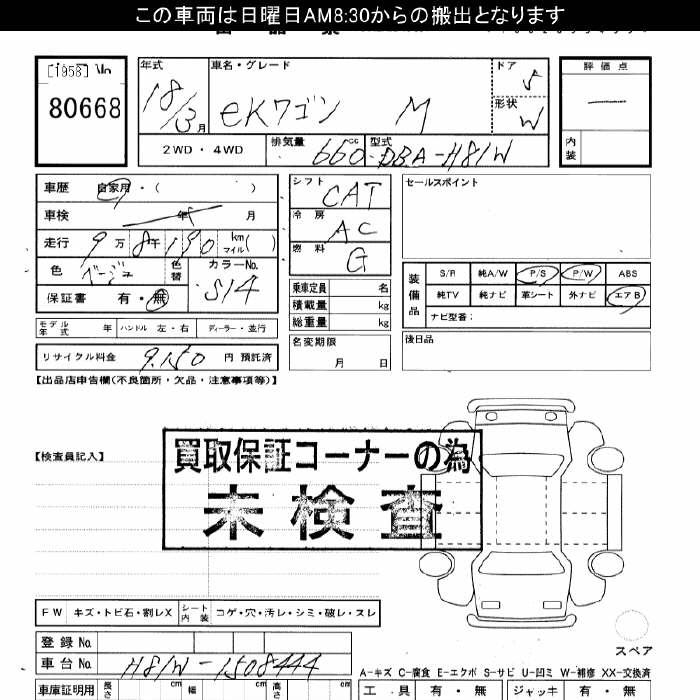 この車両は日曜日AM8:30からの搬出となります
[1958] No
80668
年式 車名・グレード ドア 評価点
18/3月 eKワゴン M 5
形状 W
内装
2WD・4WD 排気量 660cc 型式 DBA-H81W
車歴 自家用・( )
車検 年 月
走行 9万8千190 km マイル( )
色 ベージュ 色替 カラーNo. S14
保証書 有・無
モデル年式 年 ハンドル 左・右 ディーラー・並行
リサイクル料金 9,150 円 預託済
シフト CAT
冷房 AC
燃料 G
乗車定員 名
積載量 kg
総重量 kg
名変期限
月 日
セールスポイント
装備品
S/R 純A/W P/S P/W ABS
純TV 純ナビ 革シート 外ナビ エアB
ナビ型番:
後日品
【出品店申告欄(不良箇所・欠品・注意事項等)】
【検査員記入】
買取保証コーナーの為
未検査
FW キズ・トビ石・割レX シート内装 コゲ・穴・汚レ・シミ・破レ・スレ
登録No
車台No H81W-1508444
車庫証明用 長さ cm 幅 cm 高さ cm
スペア
A-キズ C-腐食 E-エクボ S-サビ U-凹ミ W-補修 XX-交換済
工具 有・無 ジャッキ 有・無